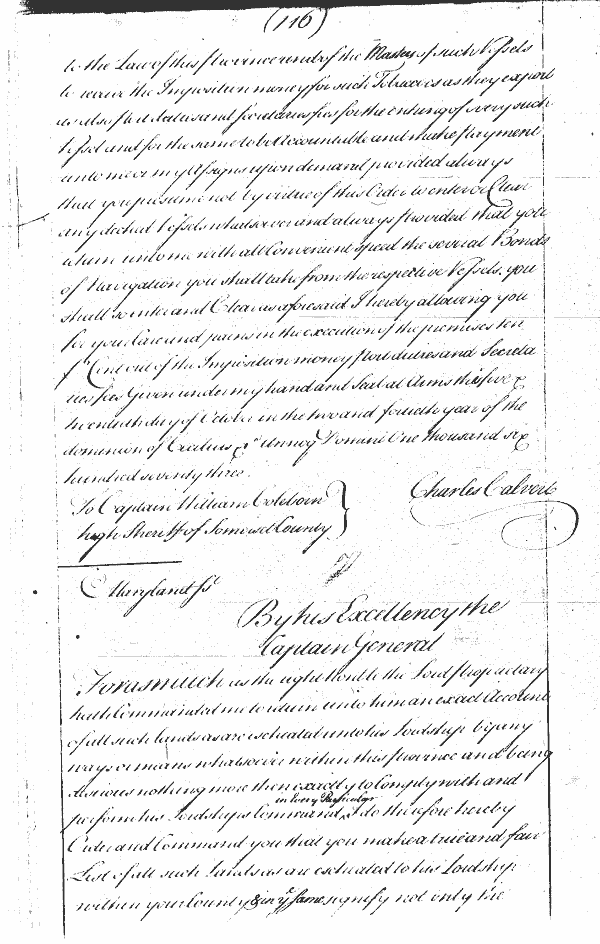 (116)
to the Law of this Province and of the Masters of such Vessels
to receive the Imposition money for such Tobaccoes as they export
as also Port duties and Secretaries fees for the entring of every such
Vessel and for the same to be Accountable and make Payment
unto me or my Assigns upon demand provided always
that you presume not by virtue of this Order to enter or Clear
any decked Vessels whatsoever and always Provided that you
return unto me with all Convenient speed the several Bonds
of Navigation you shall take from the respective Vessels you
shall so enter and Clear as aforesaid I hereby allowing you
for your Care and pains in the execution of the premises ten
p Cent out of the Imposition money Port duties and Secreta
ries fees Given under my hand and Seal at Arms this five &
twentieth day of October in the two and fourtieth year of the
dominion of Cecilius &c Annoq Domini One thousand six
hundred seventy three.
To Captain William Coleborn }
high Sheriff of Somerset County
Charles Calvert
Maryland Ss
By his Excellency the
Captain General
Forasmuch as the right Honble the Lord Proprietary
hath Commanded me to return unto him an exact Account
of all such Lands as are escheated unto his Lordship by any
ways or means whatsoever within this Province and being
desirous nothing more then exactly to Comply with and
in Every Particular
perform his Lordships Command I do therefore hereby
Order and Command you that you make a true and fair
List of all such Lands as are escheated to his Lordship
within your County & in ye same signify not only the